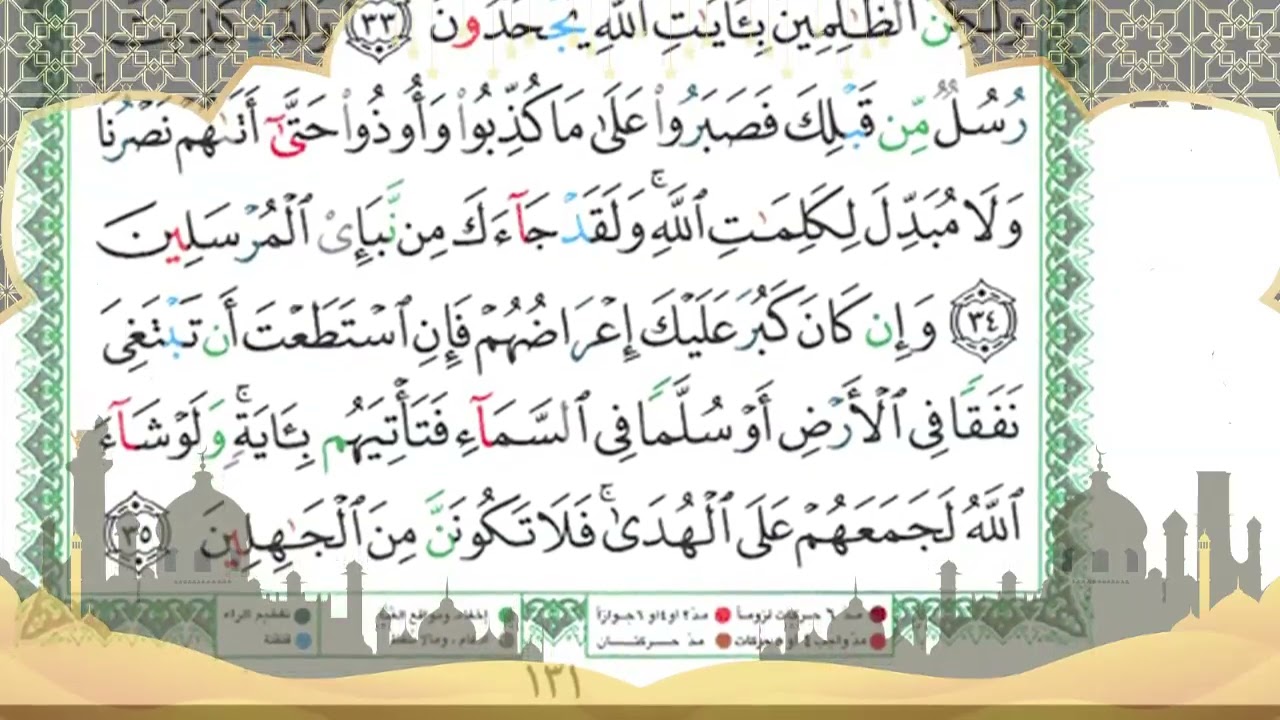 وَلَٰكِنَّ ٱلظَّٰلِمِينَ بِـَٔايَٰتِ ٱللَّهِ يَجۡحَدُونَ ٣٣ وَلَقَدۡ كُذِّبَتۡ
رُسُلٞ مِّن قَبۡلِكَ فَصَبَرُواْ عَلَىٰ مَا كُذِّبُواْ وَأُوذُواْ حَتَّىٰٓ أَتَىٰهُمۡ نَصۡرُنَا
وَلَا مُبَدِّلَ لِكَلِمَٰتِ ٱللَّهِۚ وَلَقَدۡ جَآءَكَ مِن نَّبَإِيْ ٱلۡمُرۡسَلِينَ
٣٤ وَإِن كَانَ كَبُرَ عَلَيۡكَ إِعۡرَاضُهُمۡ فَإِنِ ٱسۡتَطَعۡتَ أَن تَبۡتَغِيَ
نَفَقٗا فِي ٱلۡأَرۡضِ أَوۡ سُلَّمٗا فِي ٱلسَّمَآءِ فَتَأۡتِيَهُم بِـَٔايَةٖۚ وَلَوۡ شَآءَ
ٱللَّهُ لَجَمَعَهُمۡ عَلَى ٱلۡهُدَىٰۚ فَلَا تَكُونَنَّ مِنَ ٱلۡجَٰهِلِينَ ٣٥
مدّ ٦ حركات لزوماً مدّ ٢ أو ٤ أو ٦ جوازاً إخفاء، ومواقع الغُنَّة تفخيم الراء
مدّ واجب ٤ أو ٥ حركات مدّ حركتان إدغام، وما لا يلفظ قلقلة
١٣١